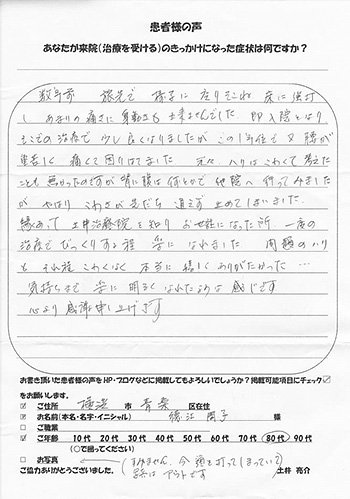 患者様の声
あなたが来院(治療を受ける)のきっかけになった症状は何ですか?
数年前 旅先で 椅子に 座りそこね 床に 強打
し あまりの痛さに 身動きも 出来ませんでした 即入院となり
そこでの治療で 少し良くなりましたが この1年位で又 腰が
重苦しく 痛くて 困りはてました 元々 ハリは こわくて 考えた
ことも 無かったのですが 背に腹は 何とかで 他院へ 行ってみました
が やはり こわさが 先だち 通えず 止めてしまいました
縁あって 土井治療院を知り お世話になった所 一度の
治療で びっくりする程 楽に なれました 問題のハリ
も それ程 こわくなく 本当に 嬉しく ありがたかった…
気持ちまで 楽に 明るく なれたような 感じです
心より 感謝申し上げます
お書き頂いた患者様の声をHP・ブログなどに掲載してもよろしいでしょうか?掲載可能項目にチェック☑
をお願いします。
☑ ご住所 横浜 市 青葉 区在住
☑ お名前(本名・名字・イニシャル) 様
□ ご職業
☑ ご年齢 10代 20代 30代 40代 50代 60代 70代 80代 90代
(○で囲ってください)
□ お写真 (すみません、今 頭を打ってしまっていて)
ご協力ありがとうございました。 アウトです 土井 亮介